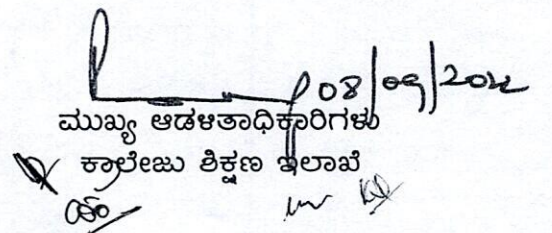 08/09/2022
ಮುಖ್ಯ ಆಡಳಿತಾಧಿಕಾರಿಗಳು
ಕಾಲೇಜು ಶಿಕ್ಷಣ ಇಲಾಖೆ